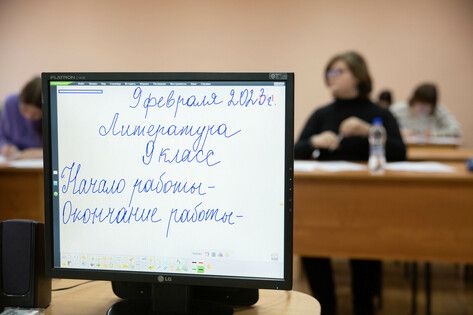 FLATRON
9 февраля 2023г.
Литература
9 класс
Начало работы-
Окончание работы-
LG